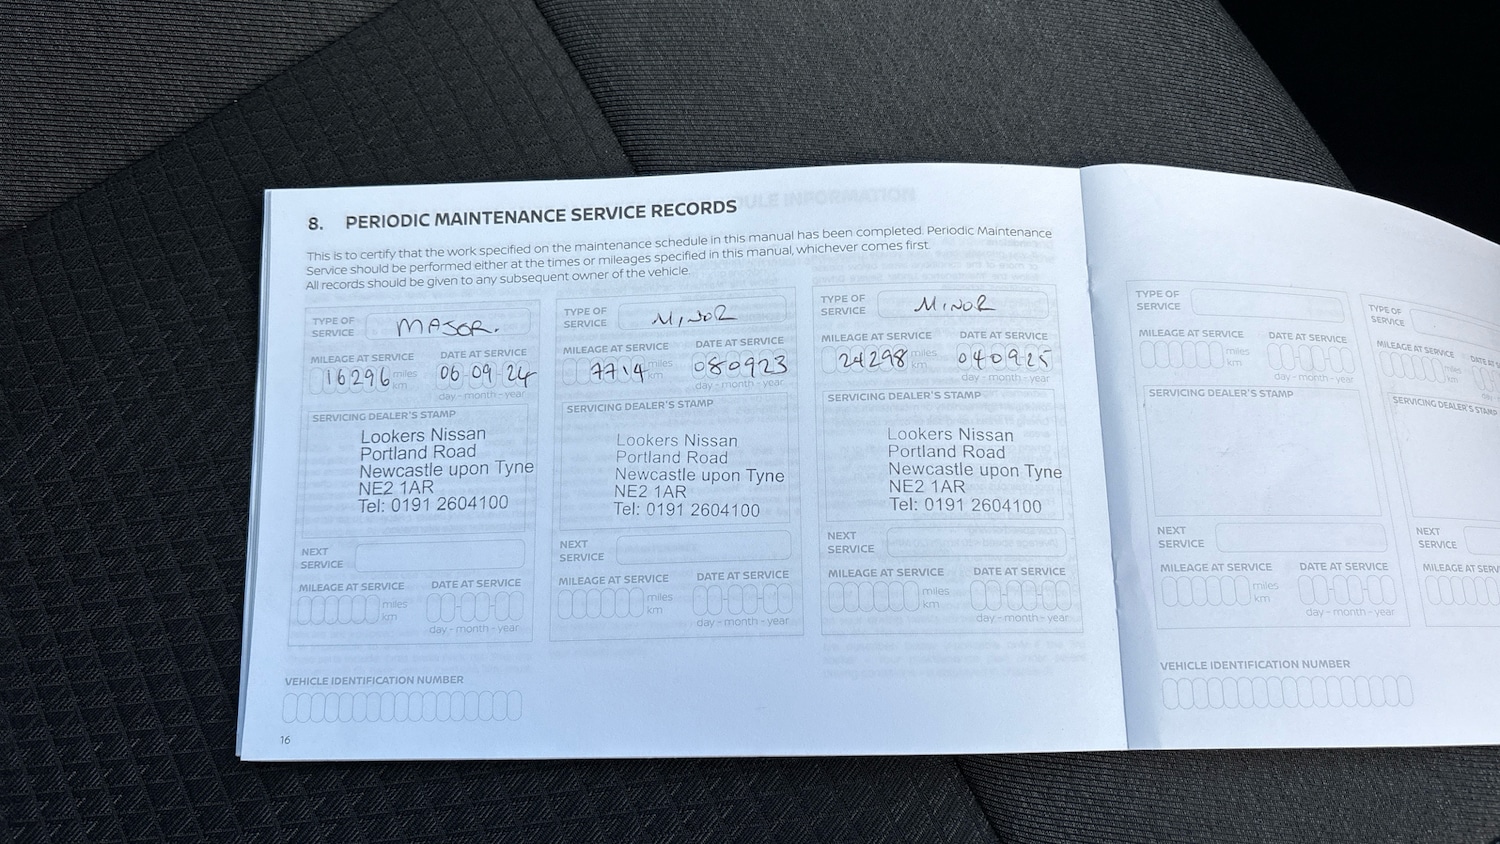 8. PERIODIC MAINTENANCE SERVICE RECORDS
This is to certify that the work specified on the maintenance schedule in this manual has been completed. Periodic Maintenance
Service should be performed either at the times or mileages specified in this manual, whichever comes first.
All records should be given to any subsequent owner of the vehicle.
TYPE OF
SERVICE
MAJOR.
MILEAGE AT SERVICE
DATE AT SERVICE
16296
miles
km
06 09 24
day - month - year
SERVICING DEALER'S STAMP
Lookers Nissan
Portland Road
Newcastle upon Tyne
NE2 1AR
Tel: 0191 2604100
NEXT
SERVICE
MILEAGE AT SERVICE
DATE AT SERVICE
miles
km
day - month - year
TYPE OF
SERVICE
MINOR
MILEAGE AT SERVICE
DATE AT SERVICE
7714
miles
km
080923
day - month - year
SERVICING DEALER'S STAMP
Lookers Nissan
Portland Road
Newcastle upon Tyne
NE2 1AR
Tel: 0191 2604100
NEXT
SERVICE
MILEAGE AT SERVICE
DATE AT SERVICE
miles
km
day - month - year
TYPE OF
SERVICE
MINOR
MILEAGE AT SERVICE
DATE AT SERVICE
24298
miles
km
040925
day - month - year
SERVICING DEALER'S STAMP
Lookers Nissan
Portland Road
Newcastle upon Tyne
NE2 1AR
Tel: 0191 2604100
NEXT
SERVICE
MILEAGE AT SERVICE
DATE AT SERVICE
miles
km
day - month - year
VEHICLE IDENTIFICATION NUMBER
16
TYPE OF
SERVICE
MILEAGE AT SERVICE
DATE AT SERVICE
miles
km
day - month - year
SERVICING DEALER'S STAMP
NEXT
SERVICE
MILEAGE AT SERVICE
DATE AT SERVICE
miles
km
day - month - year
TYPE OF
SERVICE
MILEAGE AT SERVICE
miles
km
SERVICING DEALER'S STAMP
NEXT
SERVICE
MILEAGE AT SERV
VEHICLE IDENTIFICATION NUMBER